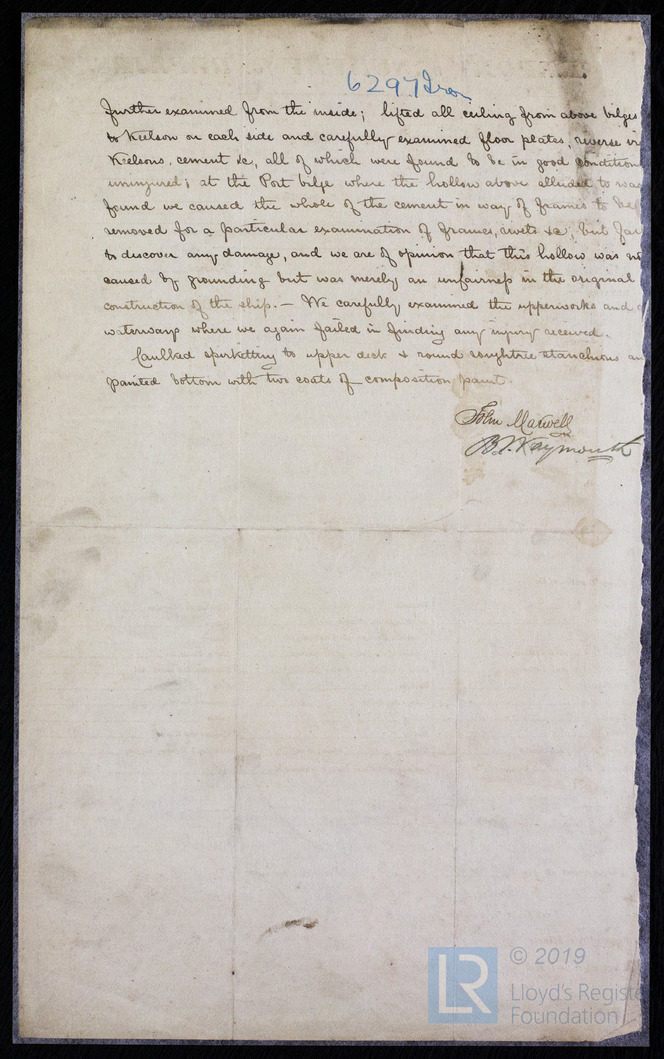 6297 Iron
further examined from the inside; lifted all ceiling from above bilges
to Keelson on each side and carefully examined floor plates, reverse
Keelsons, cement &c, all of which were found to be in good condition
uninjured; at the Port bilge where the hollow above alluded to was
found we caused the whole of the cement in way of frames to be
removed for a particular examination of frames, rivets &c; but
to discover any damage, and we are of opinion that this hollow was
caused by grounding but was merely an unfairness in the original
construction of the ship. — We carefully examined the upperworks and
waterways where we again failed in finding any injury received.
Caulked spirketting to upper deck & round roughtree stanchions
painted bottom with two coats of composition paint.
John Maxwell
B. Waymouth
© 2019
Lloyd's Registe
Foundation
LR